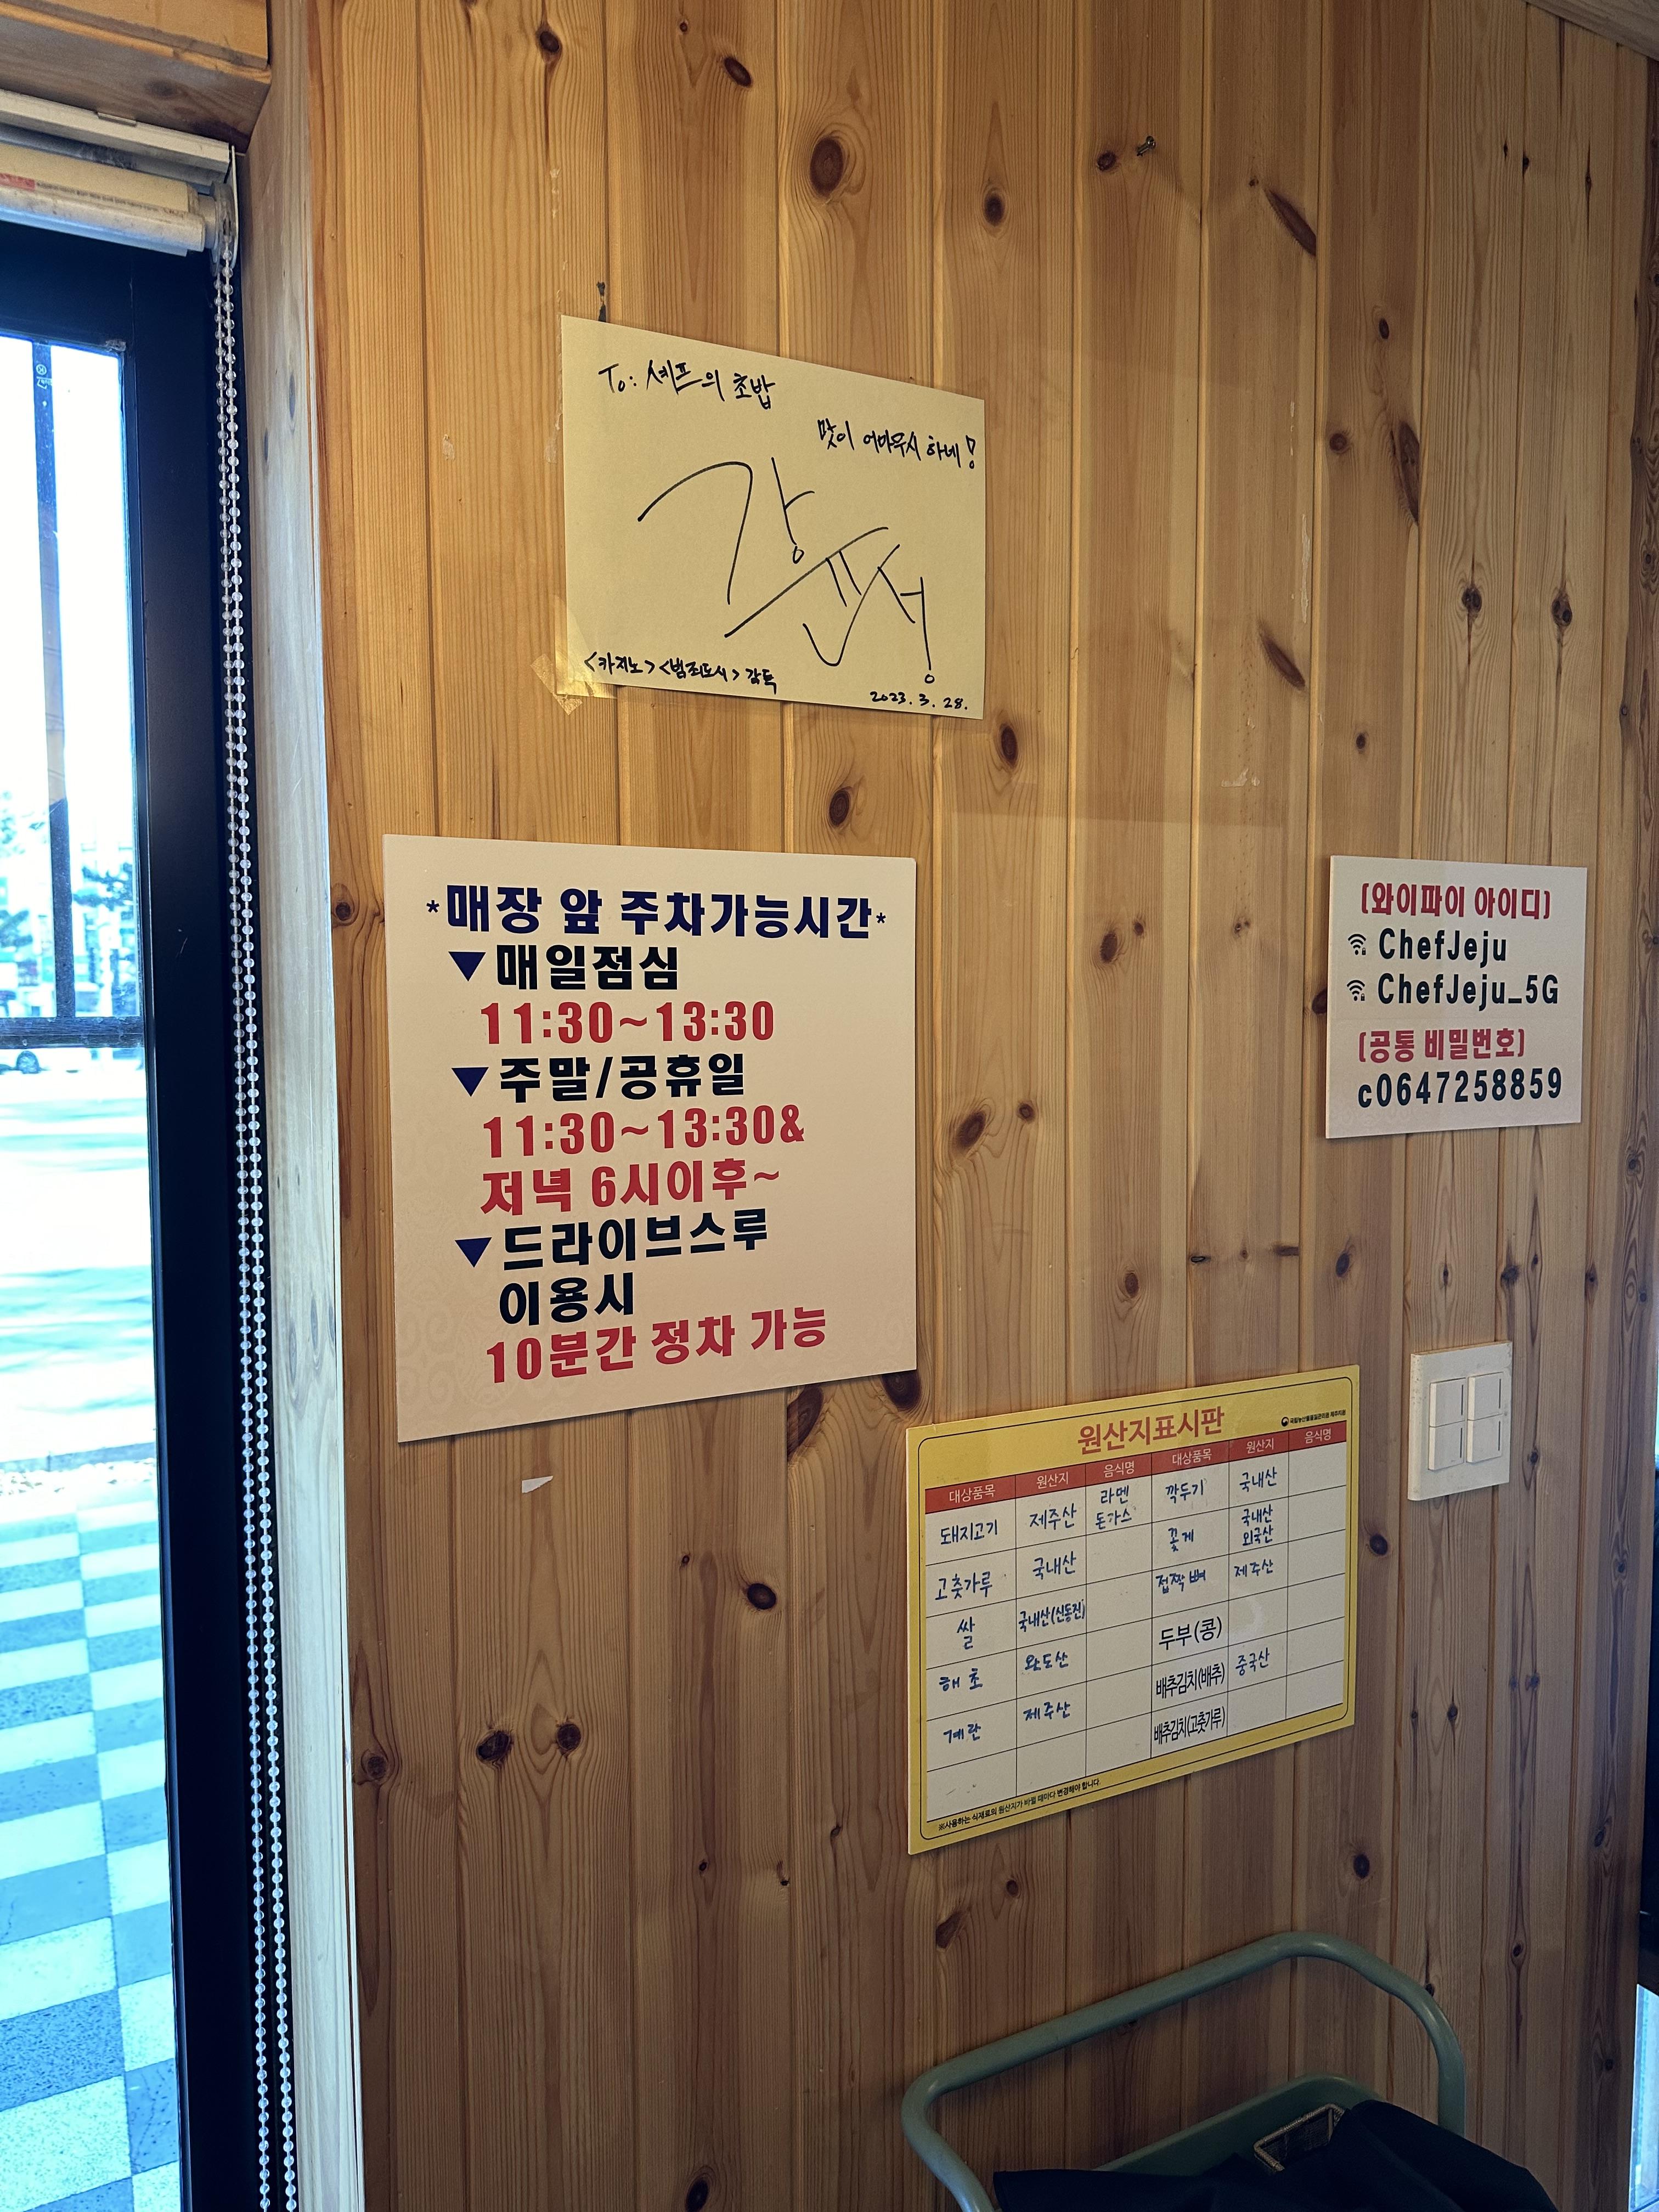 To: 셰프의 초밥
맛이 어마무시 하네!
강윤성
<카지노> <범죄도시> 감독
2023. 3. 28.
*매장 앞 주차가능시간*
▼매일점심
11:30~13:30
▼주말/공휴일
11:30~13:30&
저녁 6시이후~
▼드라이브스루
이용시
10분간 정차 가능
[와이파이 아이디]
ChefJeju
ChefJeju_5G
[공통 비밀번호]
c0647258859
원산지표시판
국립농산물품질관리원 제주지원
대상품목 원산지 음식명 대상품목 원산지 음식명
돼지고기 제주산 라멘 돈가스 깍두기 국내산
고춧가루 국내산 꽃게 국내산 외국산
쌀 국내산(신동진) 접짝뼈 제주산
해초 완도산 두부(콩)
계란 제주산 배추김치(배추) 중국산
배추김치(고춧가루)
※사용하는 식재료의 원산지가 바뀔 때마다 변경해야 합니다.